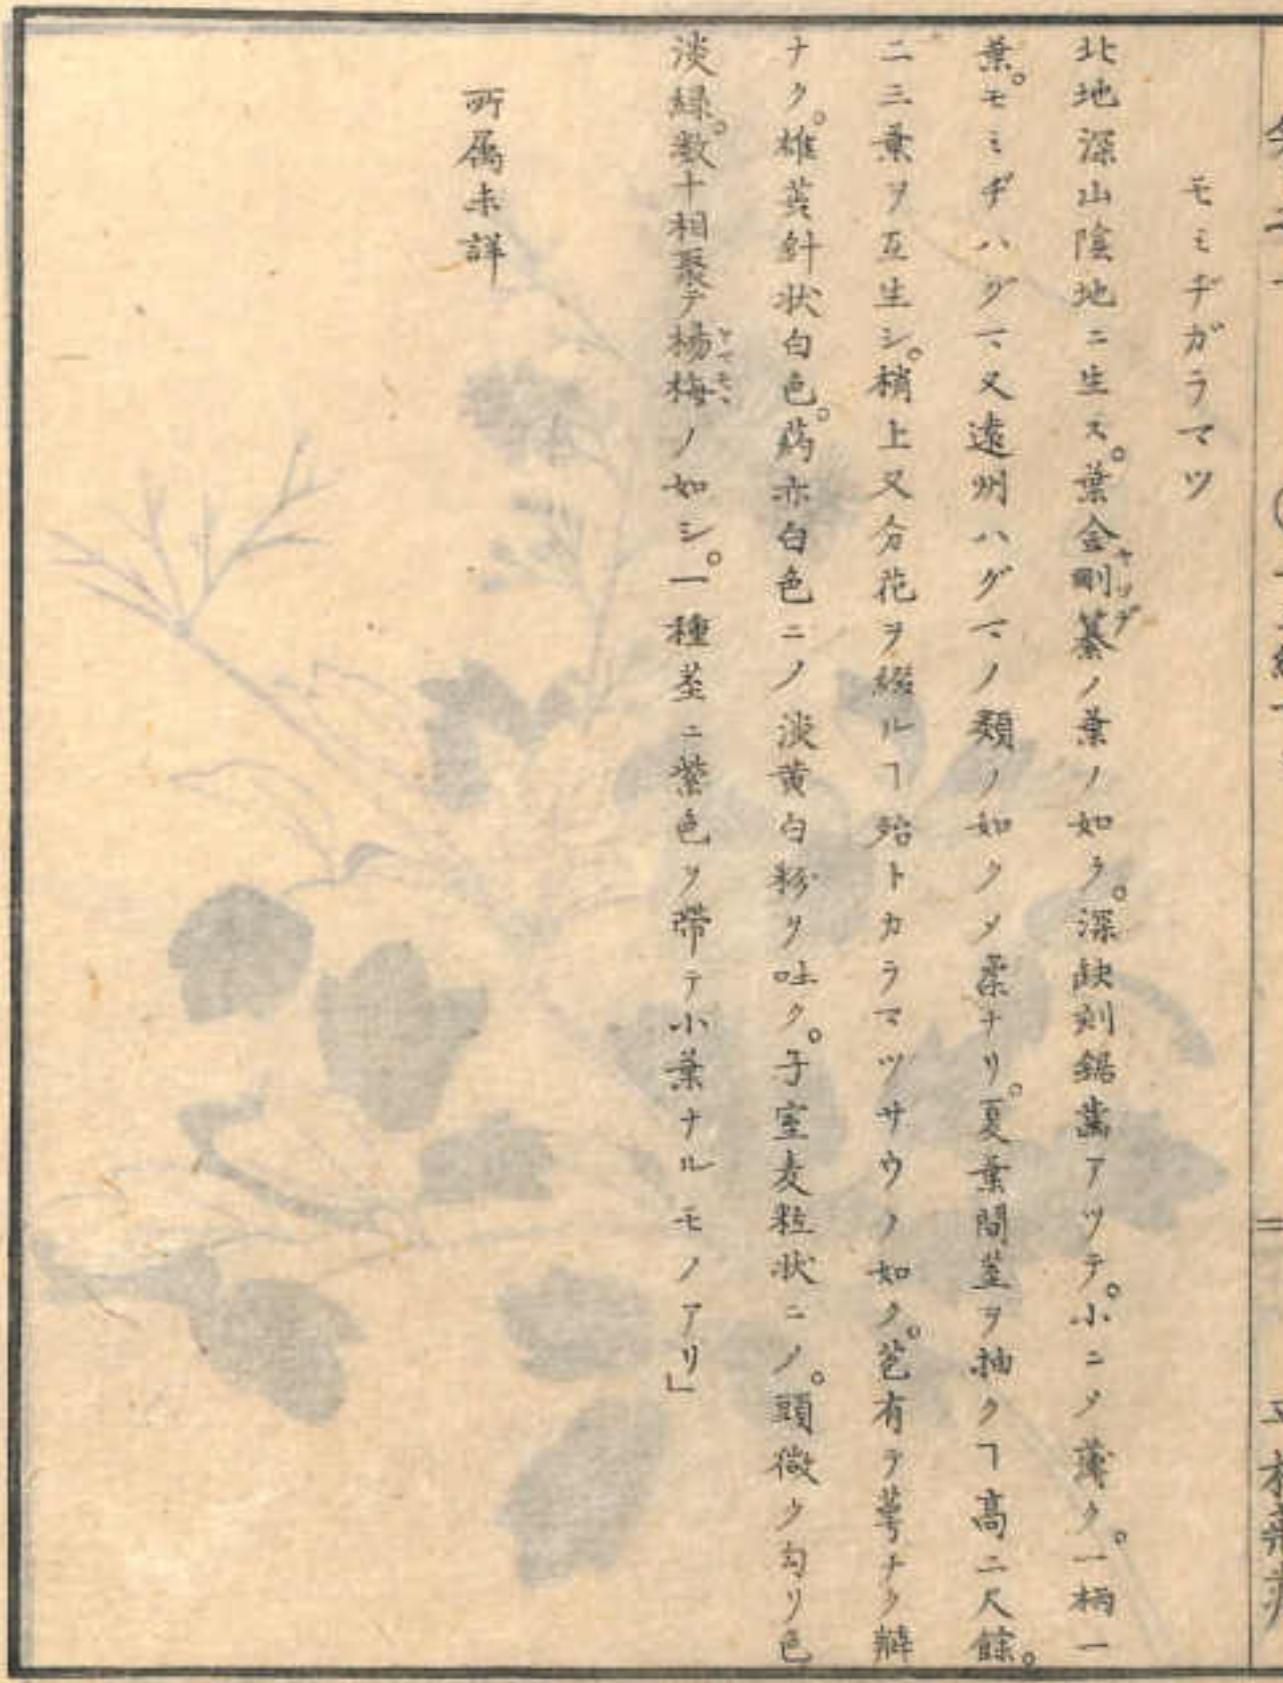 モミヂガラマツ
北地深山陰地ニ生ス。葉金剛纂ノ葉ノ如ク。深缺刻鋸歯アツテ。小ニメ薄ク。一柄一
ヤツデ
葉。モミヂハグマ又遠州ハグマノ類ノ如クメ柔ナリ。夏葉間茎ヲ抽クヿ高二尺餘。
二三葉ヲ互生シ。梢上又分花ヲ綴ルヿ殆トカラマツサウノ如ク。苞有テ萼ナク瓣
ナク。雄蕋針状白色。葯亦白色ニノ淡黄白粉ヲ吐ク。子室麦粒状ニノ。頭微ク勾リ色
淡緑。数十相聚テ楊梅ノ如シ。一種茎ニ紫色ヲ帯テ小葉ナルモノアリ」
ヤマモヽ
所属未詳